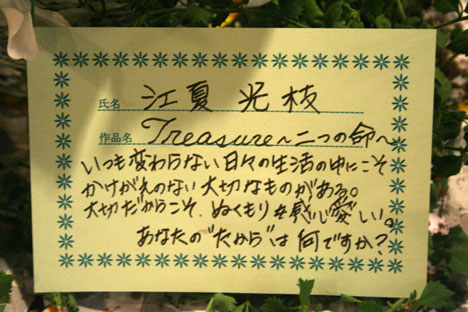 氏名 江夏 光枝
作品名 Treasure～二つの命～
いつも変わらない日々の生活の中にこそ
かけがえのない大切なものがある。
大切だからこそ、ぬくもりを感じ愛しい。
あなたの"たから"は何ですか?